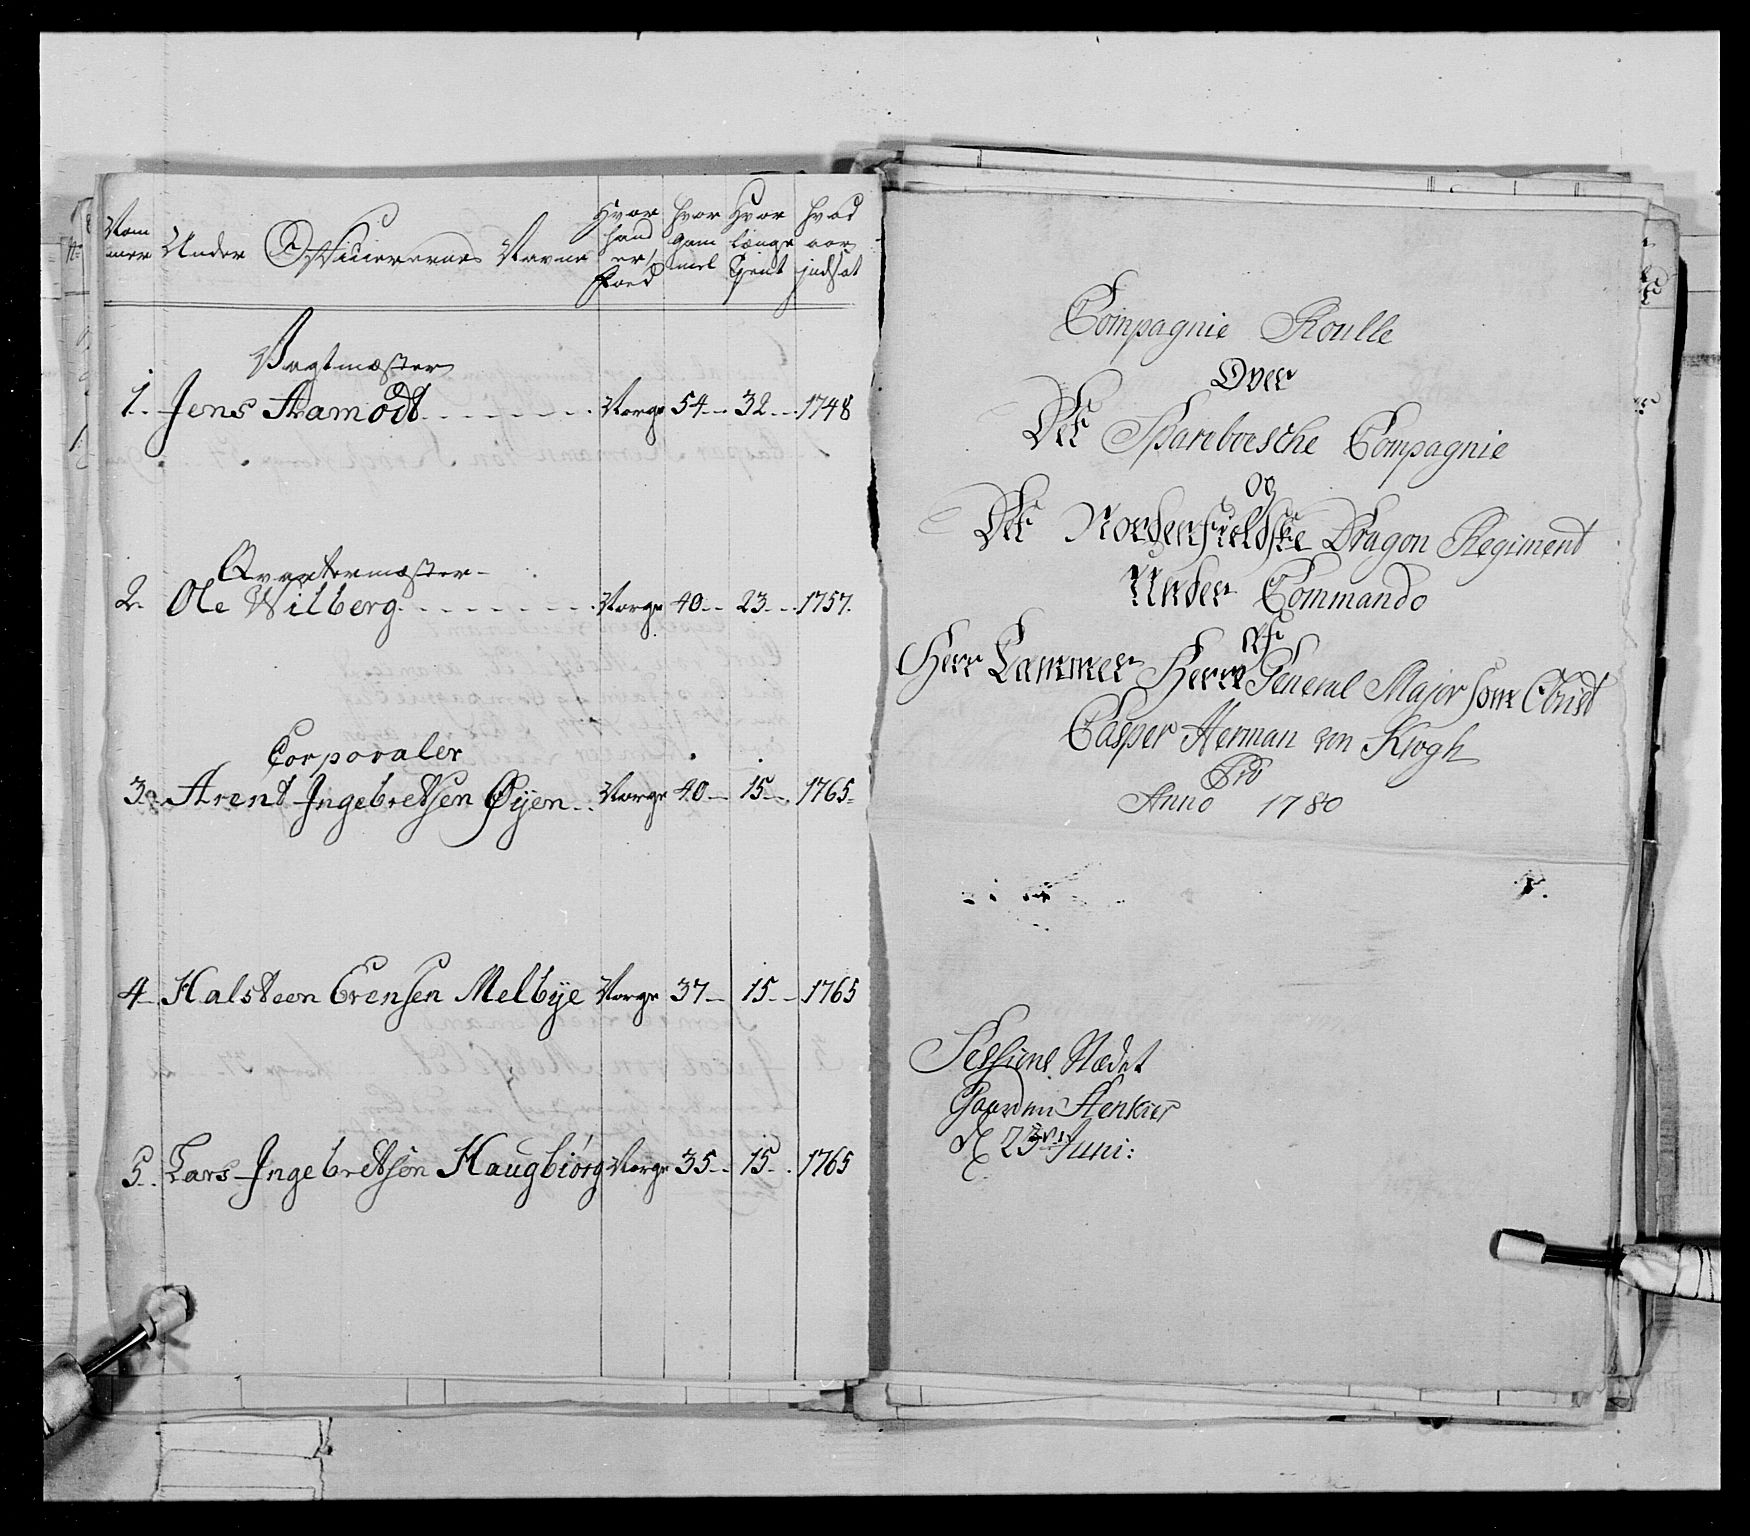 Nom mer
Under Officierernes Navne
Hvor hand er foed
Hvor gam mel
Hvor længe tjent
Hvad aar indsat
Vagtmæster
1. Jens Aamodt Norge 54 32 1748
Qvartermæster
2. Ole Wilberg Norge 40 23 1757.
Corporaler
3. Arent Ingebretsen Øyen Norge 40 15 1765
4 Halsteen Evensen Melbye Norge 37 15 1765
5. Lars Ingebretsen Haugbiørg Norge 35 15 1765
Compagnie Roulle
Over
Det Spareboesche Compagnie
og
Det Nordenfieldske Dragon Regiment
Under Commando
Af
Herr Cammer Herre General Major
Casper Herman von Krogh
Pro
Anno 1780
Sessions Stædet
Gaarden Stenkier
d 23de Juni: